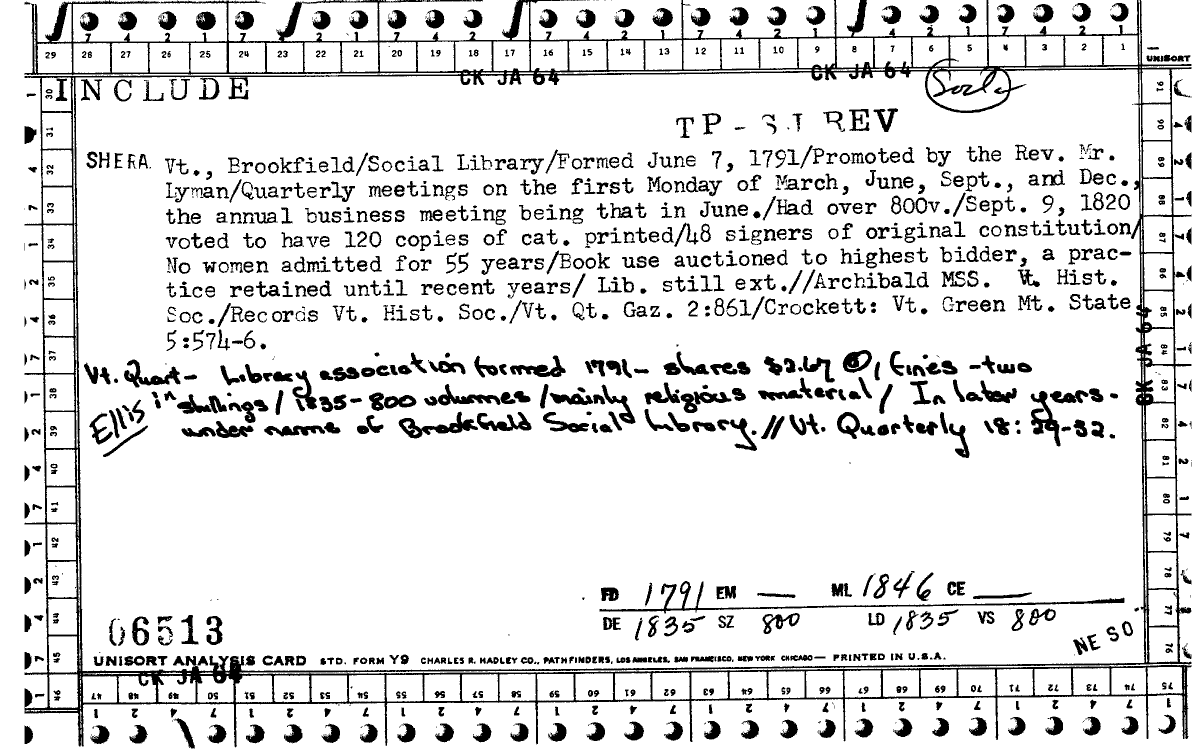 7 4 2 1 7 4 2 1 7 4 2 1 7 4 2 1 7 4 2 1 7 4 2 1
29 28 27 26 25 24 23 22 21 20 19 18 17 16 15 14 13 12 11 10 9 8 7 6 5 4 3 2 1
UNISORT
CK JA 64 CK JA 64
INCLUDE
TP - SJ REV
SHERA Vt., Brookfield/Social Library/Formed June 7, 1791/Promoted by the Rev. Mr.
Lyman/Quarterly meetings on the first Monday of March, June, Sept., and Dec.,
the annual business meeting being that in June./Had over 800v./Sept. 9, 1820
voted to have 120 copies of cat. printed/48 signers of original constitution/
No women admitted for 55 years/Book use auctioned to highest bidder, a prac-
tice retained until recent years/ Lib. still ext.//Archibald MSS. Vt. Hist.
Soc./Records Vt. Hist. Soc./Vt. Qt. Gaz. 2:861/Crockett: Vt. Green Mt. State
5:574-6.
CK JA 64
Vt. Quart- Library association formed 1791- shares $2.67 @, fines -two
Ellis in shillings / 1835-800 volumes /mainly religious material/ In later years-
under name of Brookfield Social Library.// Vt. Quarterly 18: 29-32.
FD 1791 EM — ML 1846 CE —
DE 1835 SZ 800 LD 1835 VS 800
NE SO
06513
UNISORT ANALYSIS CARD STD. FORM Y9 CHARLES R. HADLEY CO., PATHFINDERS, LOS ANGELES, SAN FRANCISCO, NEW YORK CHICAGO— PRINTED IN U.S.A.
CK JA 64